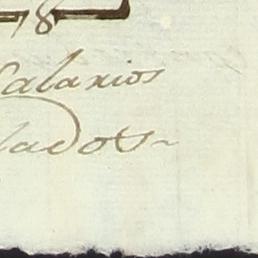 78
Salarios
lados